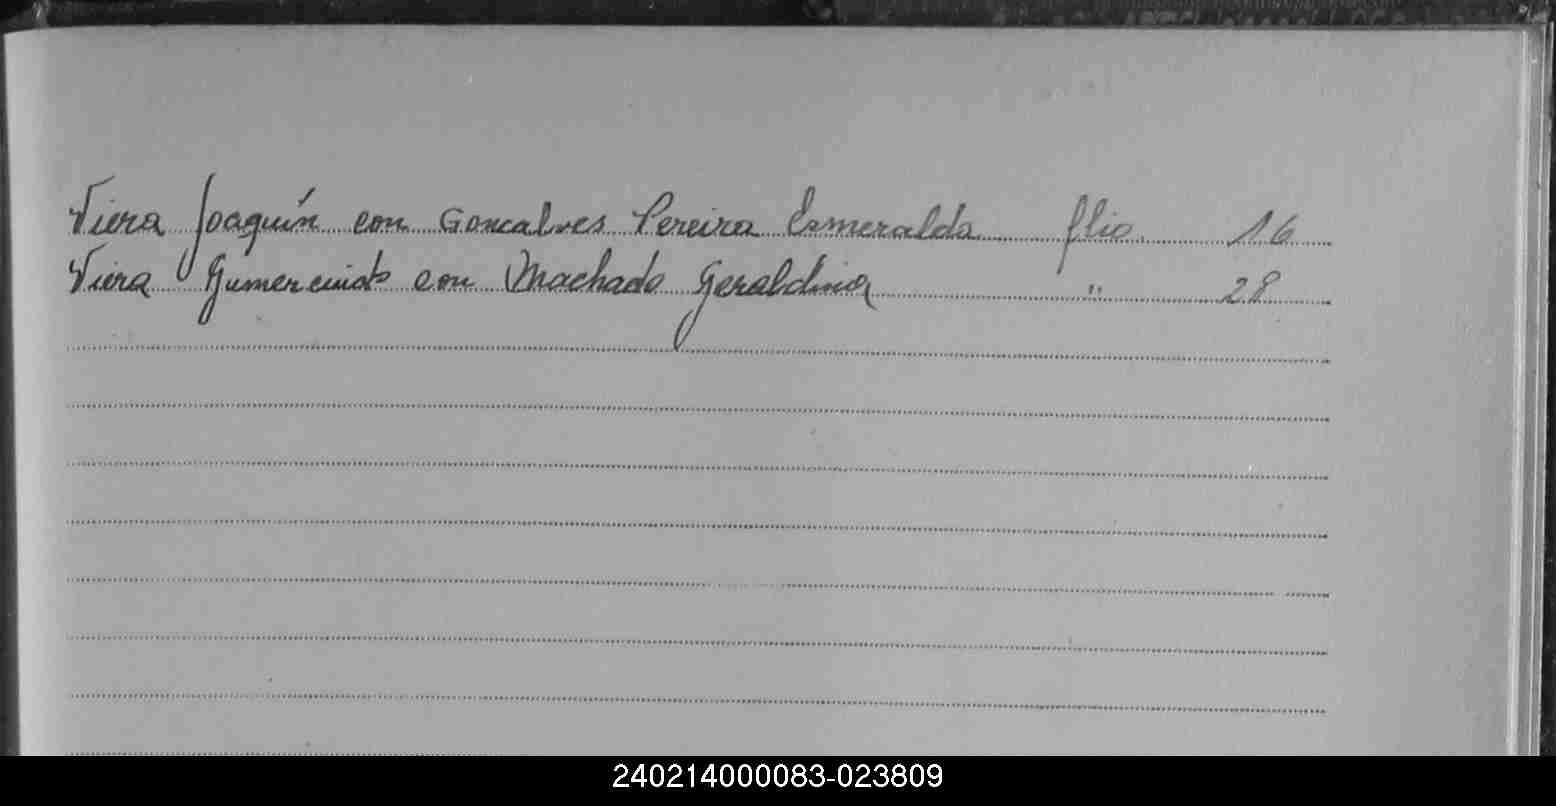 Viera Joaquín con Goncalves Pereira Esmeralda flio. 16
Viera Gumercindo con Machado Geraldina " 28
240214000083-023809